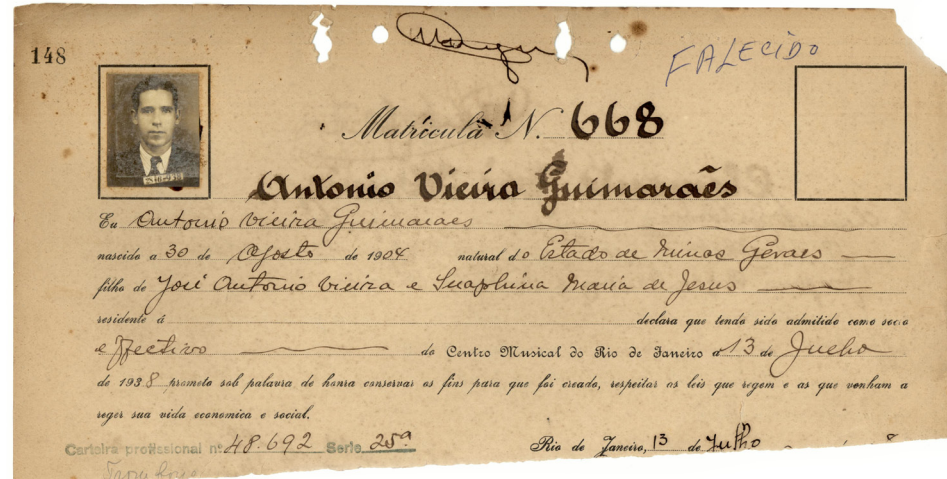 148
FALECIDO
Matrícula N. 668
Antonio Vieira Guimarães
Eu Antonio Vieira Guimaraes
nascido a 30 de Agosto de 1904 natural do Estado de Minas Geraes
filho de José Antonio Vieira e Maria de Jesus
residente á declara que tendo sido admitido como socio
effectivo do Centro Musical do Rio de Janeiro a 13 de Julho
de 1938 prometo sob palavra de honra conservar os fins para que foi creado, respeitar as leis que regem e as que venham a
reger sua vida economica e social.
Carteira profissional nº 48.692 Serie 25ª
Rio de Janeiro, 13 de Julho